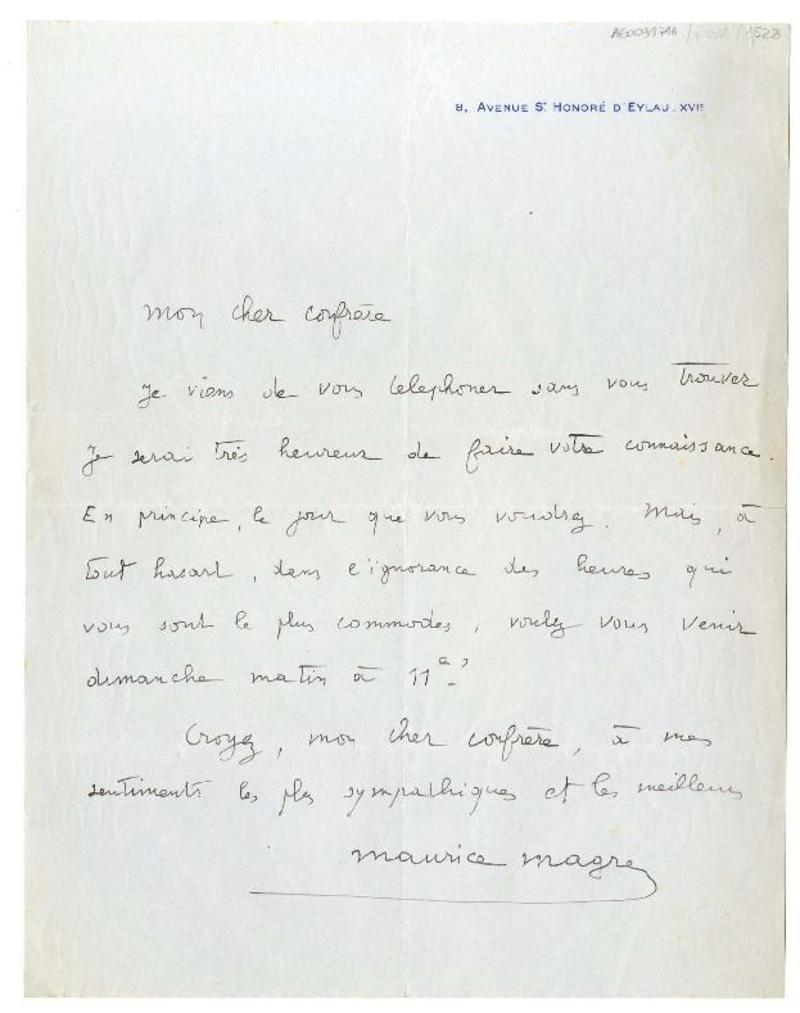 AE0031716 / 1522
8, AVENUE ST HONORÉ D'EYLAU. XVIE
Mon cher confrère
Je viens de vous telephoner sans vous trouver.
Je serai très heureux de faire votre connaissance.
En principe, le jour que vous voudrez. Mais, à
tout hasart, dans l'ignorance des heures qui
vous sont le plus commodes, voulez vous venir
dimanche matin à 11 ?
Croyez, mon cher confrère, à mes
sentiments les plus sympathiques et les meilleurs
Maurice Magre